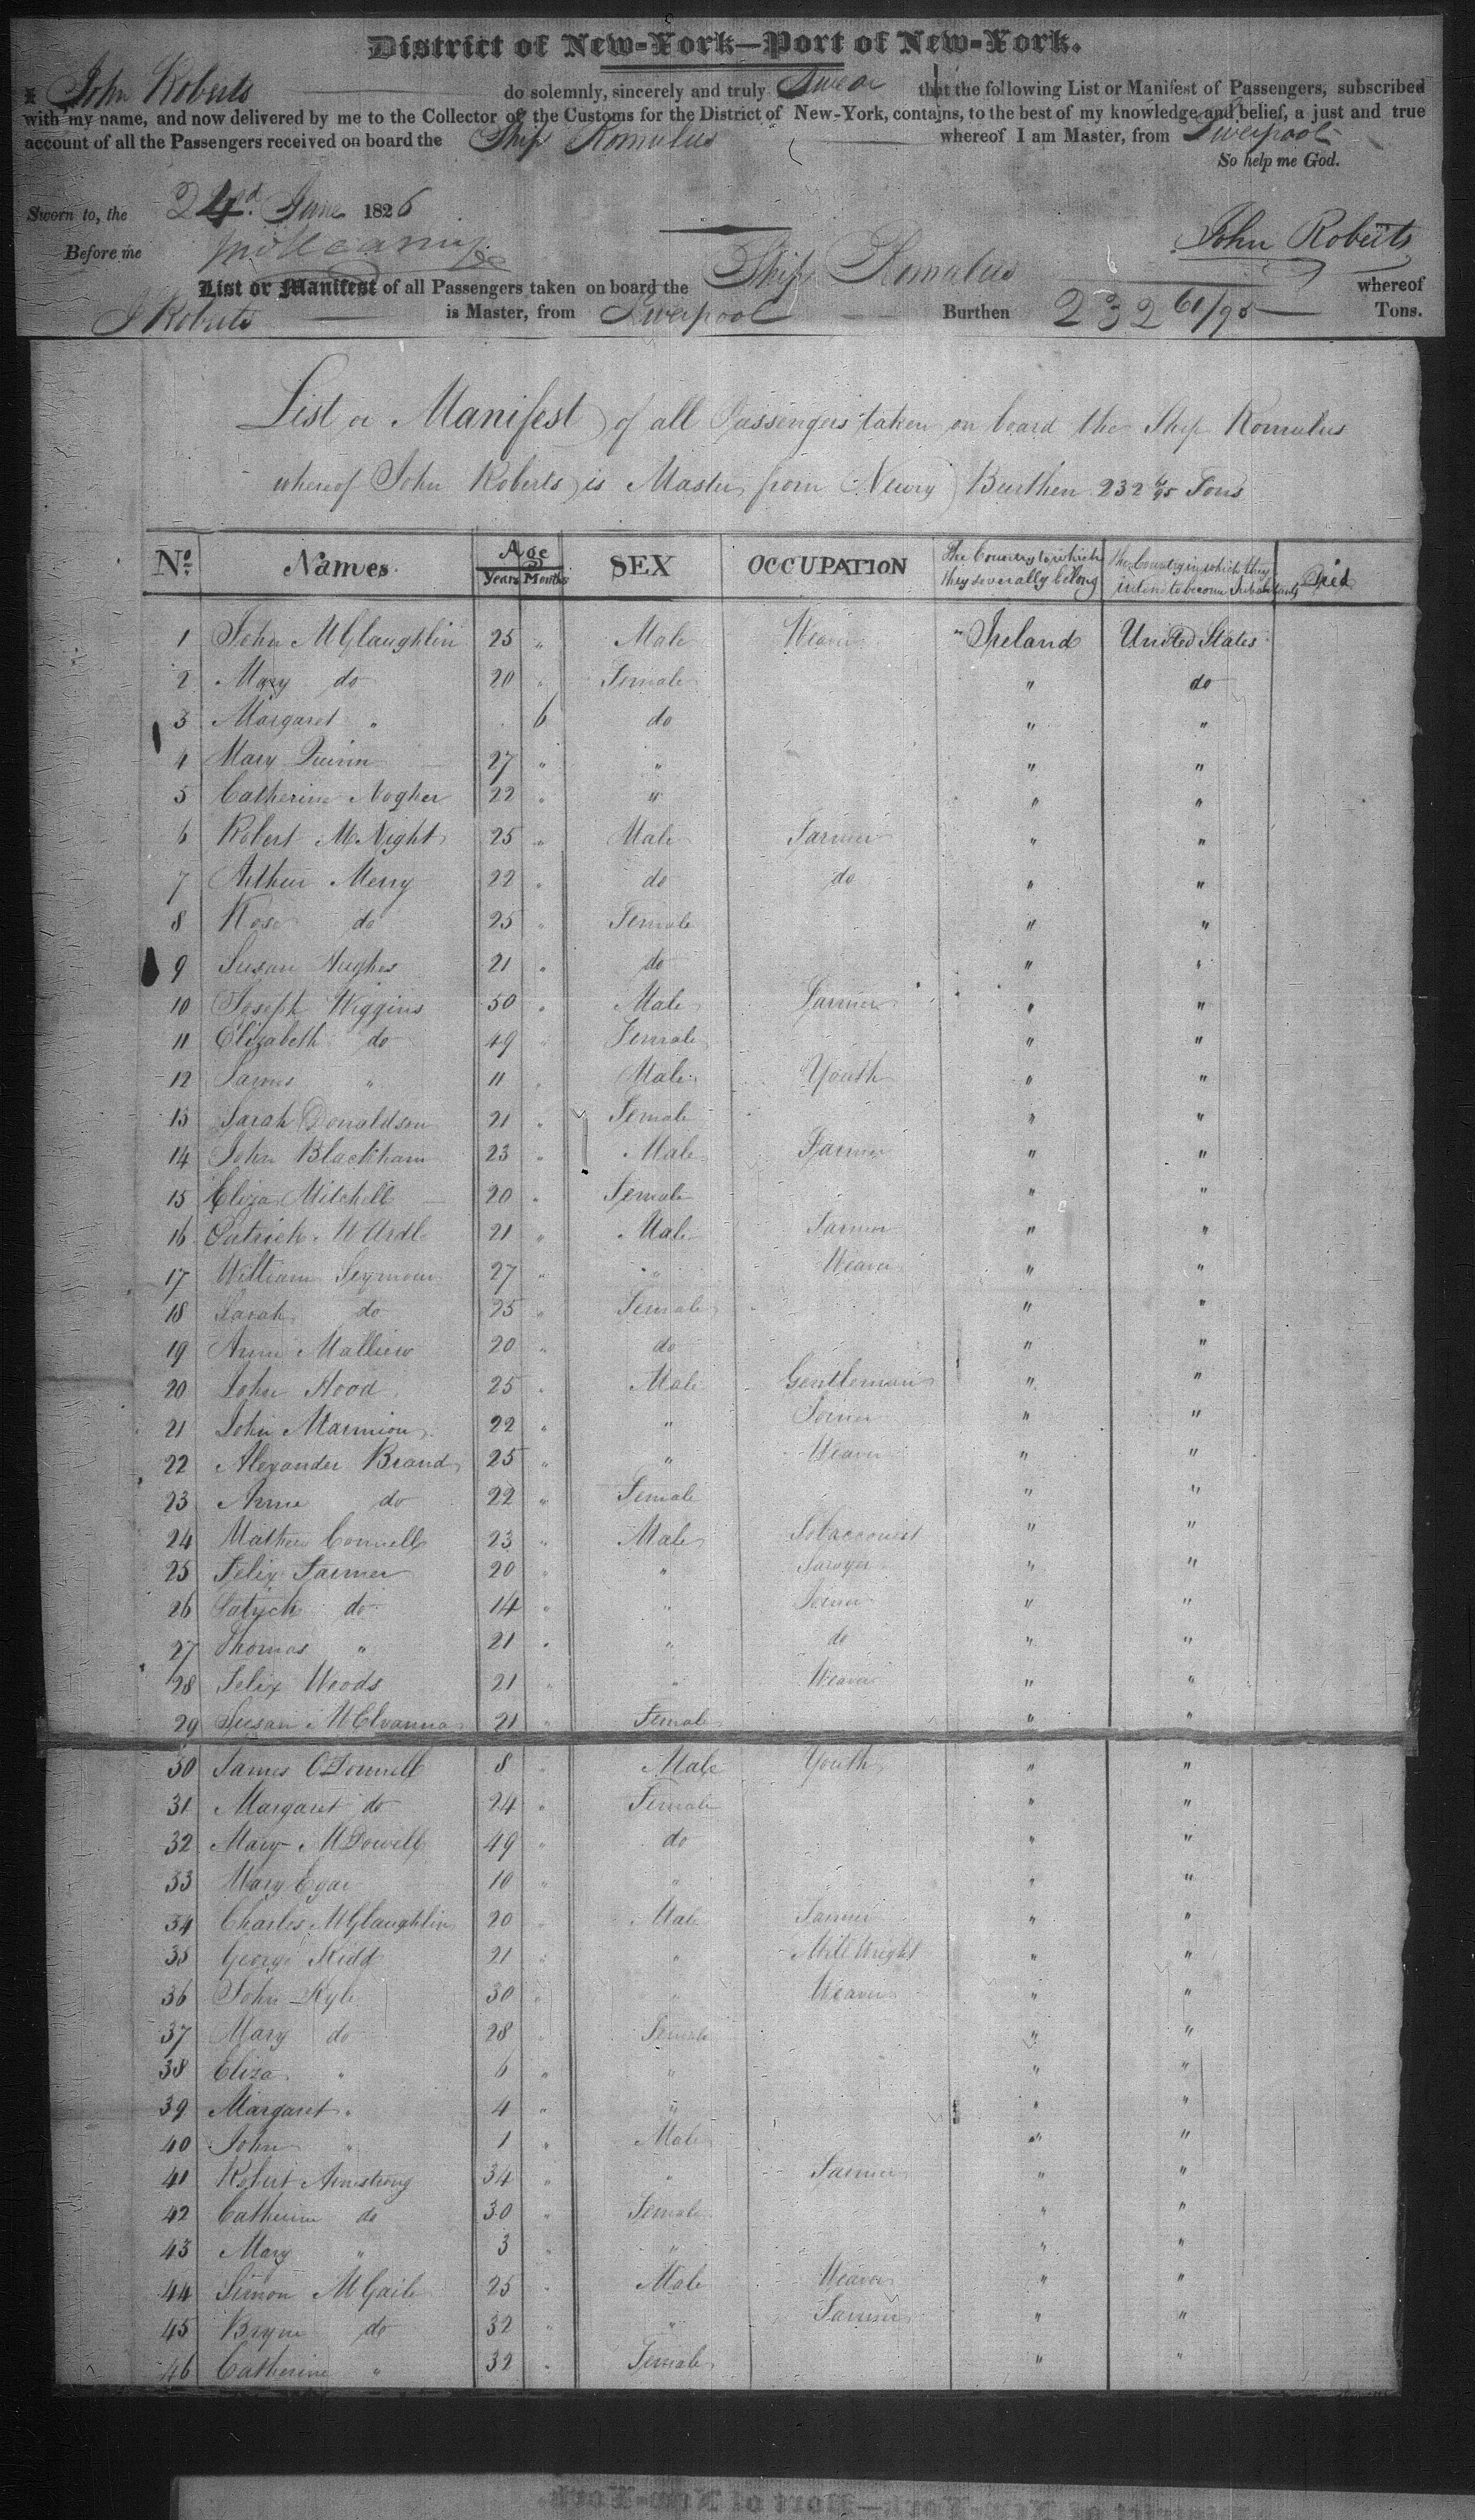 District of New-York—Port of New-York.
I John Roberts do solemnly, sincerely and truly Swear that the following List or Manifest of Passengers, subscribed
with my name, and now delivered by me to the Collector of the Customs for the District of New-York, contains, to the best of my knowledge and belief, a just and true
account of all the Passengers received on board the Ship Romulus whereof I am Master, from Liverpool
So help me God.
Sworn to, the 24d June 1826
Before me John Roberts
List or Manifest of all Passengers taken on board the Ship Romulus whereof
J Roberts is Master, from Liverpool Burthen 232 61/95 Tons.
List or Manifest of all Passengers taken on board the Ship Romulus
whereof John Roberts is Master from Newry Burthen 232 61/95 Tons
No. Names Age Years Months SEX OCCUPATION The Country to which they severally belong The Country in which they intend to become Inhabitants Died
1 John McGlaughlin 25 " Male Weaver Ireland United States
2 Mary do 20 " Female " do
3 Margaret " 6 do " "
4 Mary Quinn 27 " " " "
5 Catherine Nogher 22 " " " "
6 Robert McNight 25 " Male Farmer " "
7 Arthur Merry 22 " do do " "
8 Rose do 25 " Female " "
9 Susan Hughes 21 " do " "
10 Joseph Wiggins 50 " Male Farmer " "
11 Elizabeth do 49 " Female " "
12 James " 11 " Male Youth " "
13 Sarah Donaldson 21 " Female " "
14 John Blackham 23 " Male Farmer " "
15 Eliza Mitchell 20 " Female " "
16 Patrick McArdle 21 " Male Farmer " "
17 William Seymour 27 " " Weaver " "
18 Sarah do 25 " Female " "
19 Anne 20 " do " "
20 John Hood 25 " Male Gentleman " "
21 John Marmion 22 " " Joiner " "
22 Alexander Brand 25 " " Weaver " "
23 Anne do 22 " Female " "
24 Mathew Connell 23 " Male Tobacconist " "
25 Felix Farmer 20 " " Sawyer " "
26 Patrick do 14 " " Joiner " "
27 Thomas " 21 " " do " "
28 Felix Woods 21 " " Weaver " "
29 Susan McElvanna 21 " Female " "
30 James O'Donnell 8 " Male Youth " "
31 Margaret do 24 " Female " "
32 Mary McDowell 49 " do " "
33 Mary Egar 10 " " " "
34 Charles McGlaughlin 20 " Male Farmer " "
35 George Kidd 21 " " Mill Wright " "
36 John Kyle 30 " " Weaver " "
37 Mary do 28 " Female " "
38 Eliza " 6 " " " "
39 Margaret " 4 " " " "
40 John " 1 " Male " "
41 Robert Armstrong 34 " " Farmer " "
42 Catherine do 30 " Female " "
43 Mary " 3 " " " "
44 Simon McGaile 25 " Male Weaver " "
45 Bryne do 32 " " Farmer " "
46 Catherine " 32 " Female " "